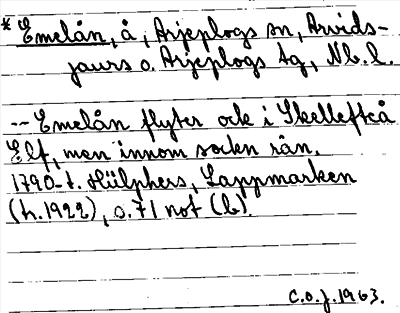 * Emelån, å, Arjeplogs sn, Arvids-
jaurs o. Arjeplogs tg, Nb. l.
-- Emelån flyter ock i Skellefteå
Elf, men innom socken rån.
1790-t. Hülphers, Lappmarken
(h. 1922), s. 71 not (b).
C.O.J. 1963.